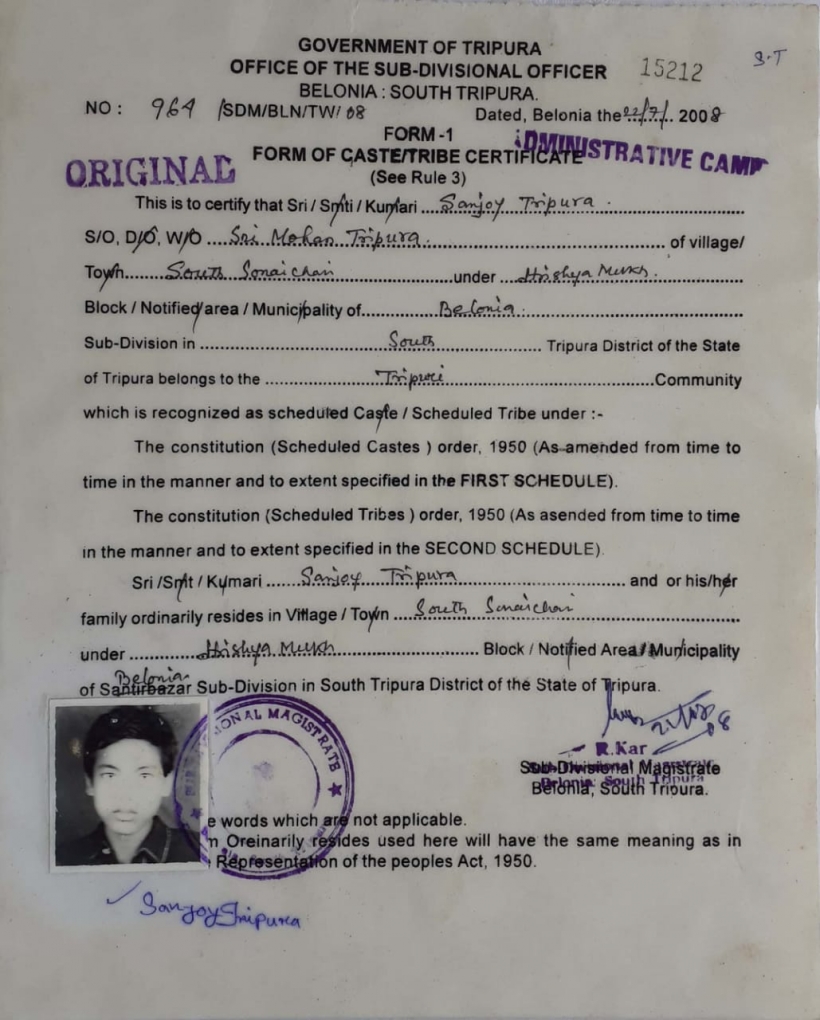 GOVERNMENT OF TRIPURA
OFFICE OF THE SUB-DIVISIONAL OFFICER
15212
S.T
BELONIA : SOUTH TRIPURA.
NO : 964 /SDM/BLN/TW/ 08 Dated, Belonia the 22/7/. 2008
FORM -1
ADMINISTRATIVE CAMP
ORIGINAL
FORM OF CASTE/TRIBE CERTIFICATE
(See Rule 3)
This is to certify that Sri / Smti / Kumari .... Sanjoy Tripura .
S/O, D/O, W/O .... Sri Mohan Tripura. of village/
Town........ South Sonaichari ........under .. Hrishya Mukh.
Block / Notified area / Municipality of............. Belonia.
Sub-Division in .......... South .......... Tripura District of the State
of Tripura belongs to the .......... Tripuri ..........Community
which is recognized as scheduled Caste / Scheduled Tribe under :-
The constitution (Scheduled Castes ) order, 1950 (As amended from time to
time in the manner and to extent specified in the FIRST SCHEDULE).
The constitution (Scheduled Tribas ) order, 1950 (As asended from time to time
in the manner and to extent specified in the SECOND SCHEDULE).
Sri /Smt / Kumari ...... Sanjoy Tripura .......... and or his/her
family ordinarily resides in Village / Town .... South Sonaichari
under .......... Hrishya Mukh .......... Block / Notified Area / Municipality
Belonia
of Santirbazar Sub-Division in South Tripura District of the State of Tripura.
08
R.Kar
Sub-Divisional Magistrate
Belonia, South Tripura.
Belonia: South Tripura
IONAL MAGISTRATE
e words which are not applicable.
m Oreinarily resides used here will have the same meaning as in
Representation of the peoples Act, 1950.
Sanjoy Tripura